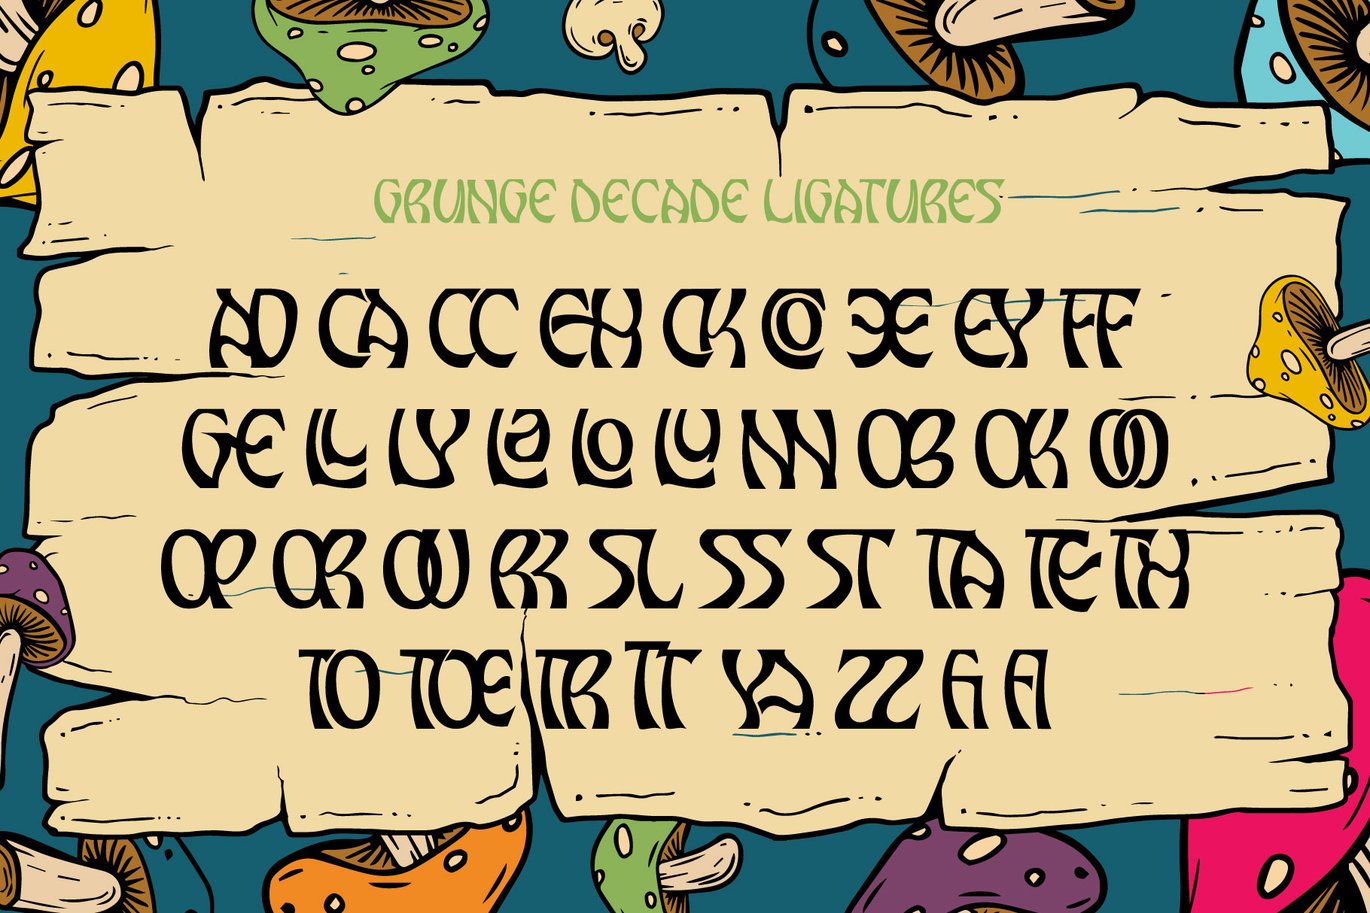 GRUNGE DECADE LIGATURES
AD CA CC EH CK CO XE EY FF
GE LL LY LA LO LU NN OB OK OO
OP OR OU RR SL SS ST TA TE TH
TO TOE TR TT YA ZZ A A